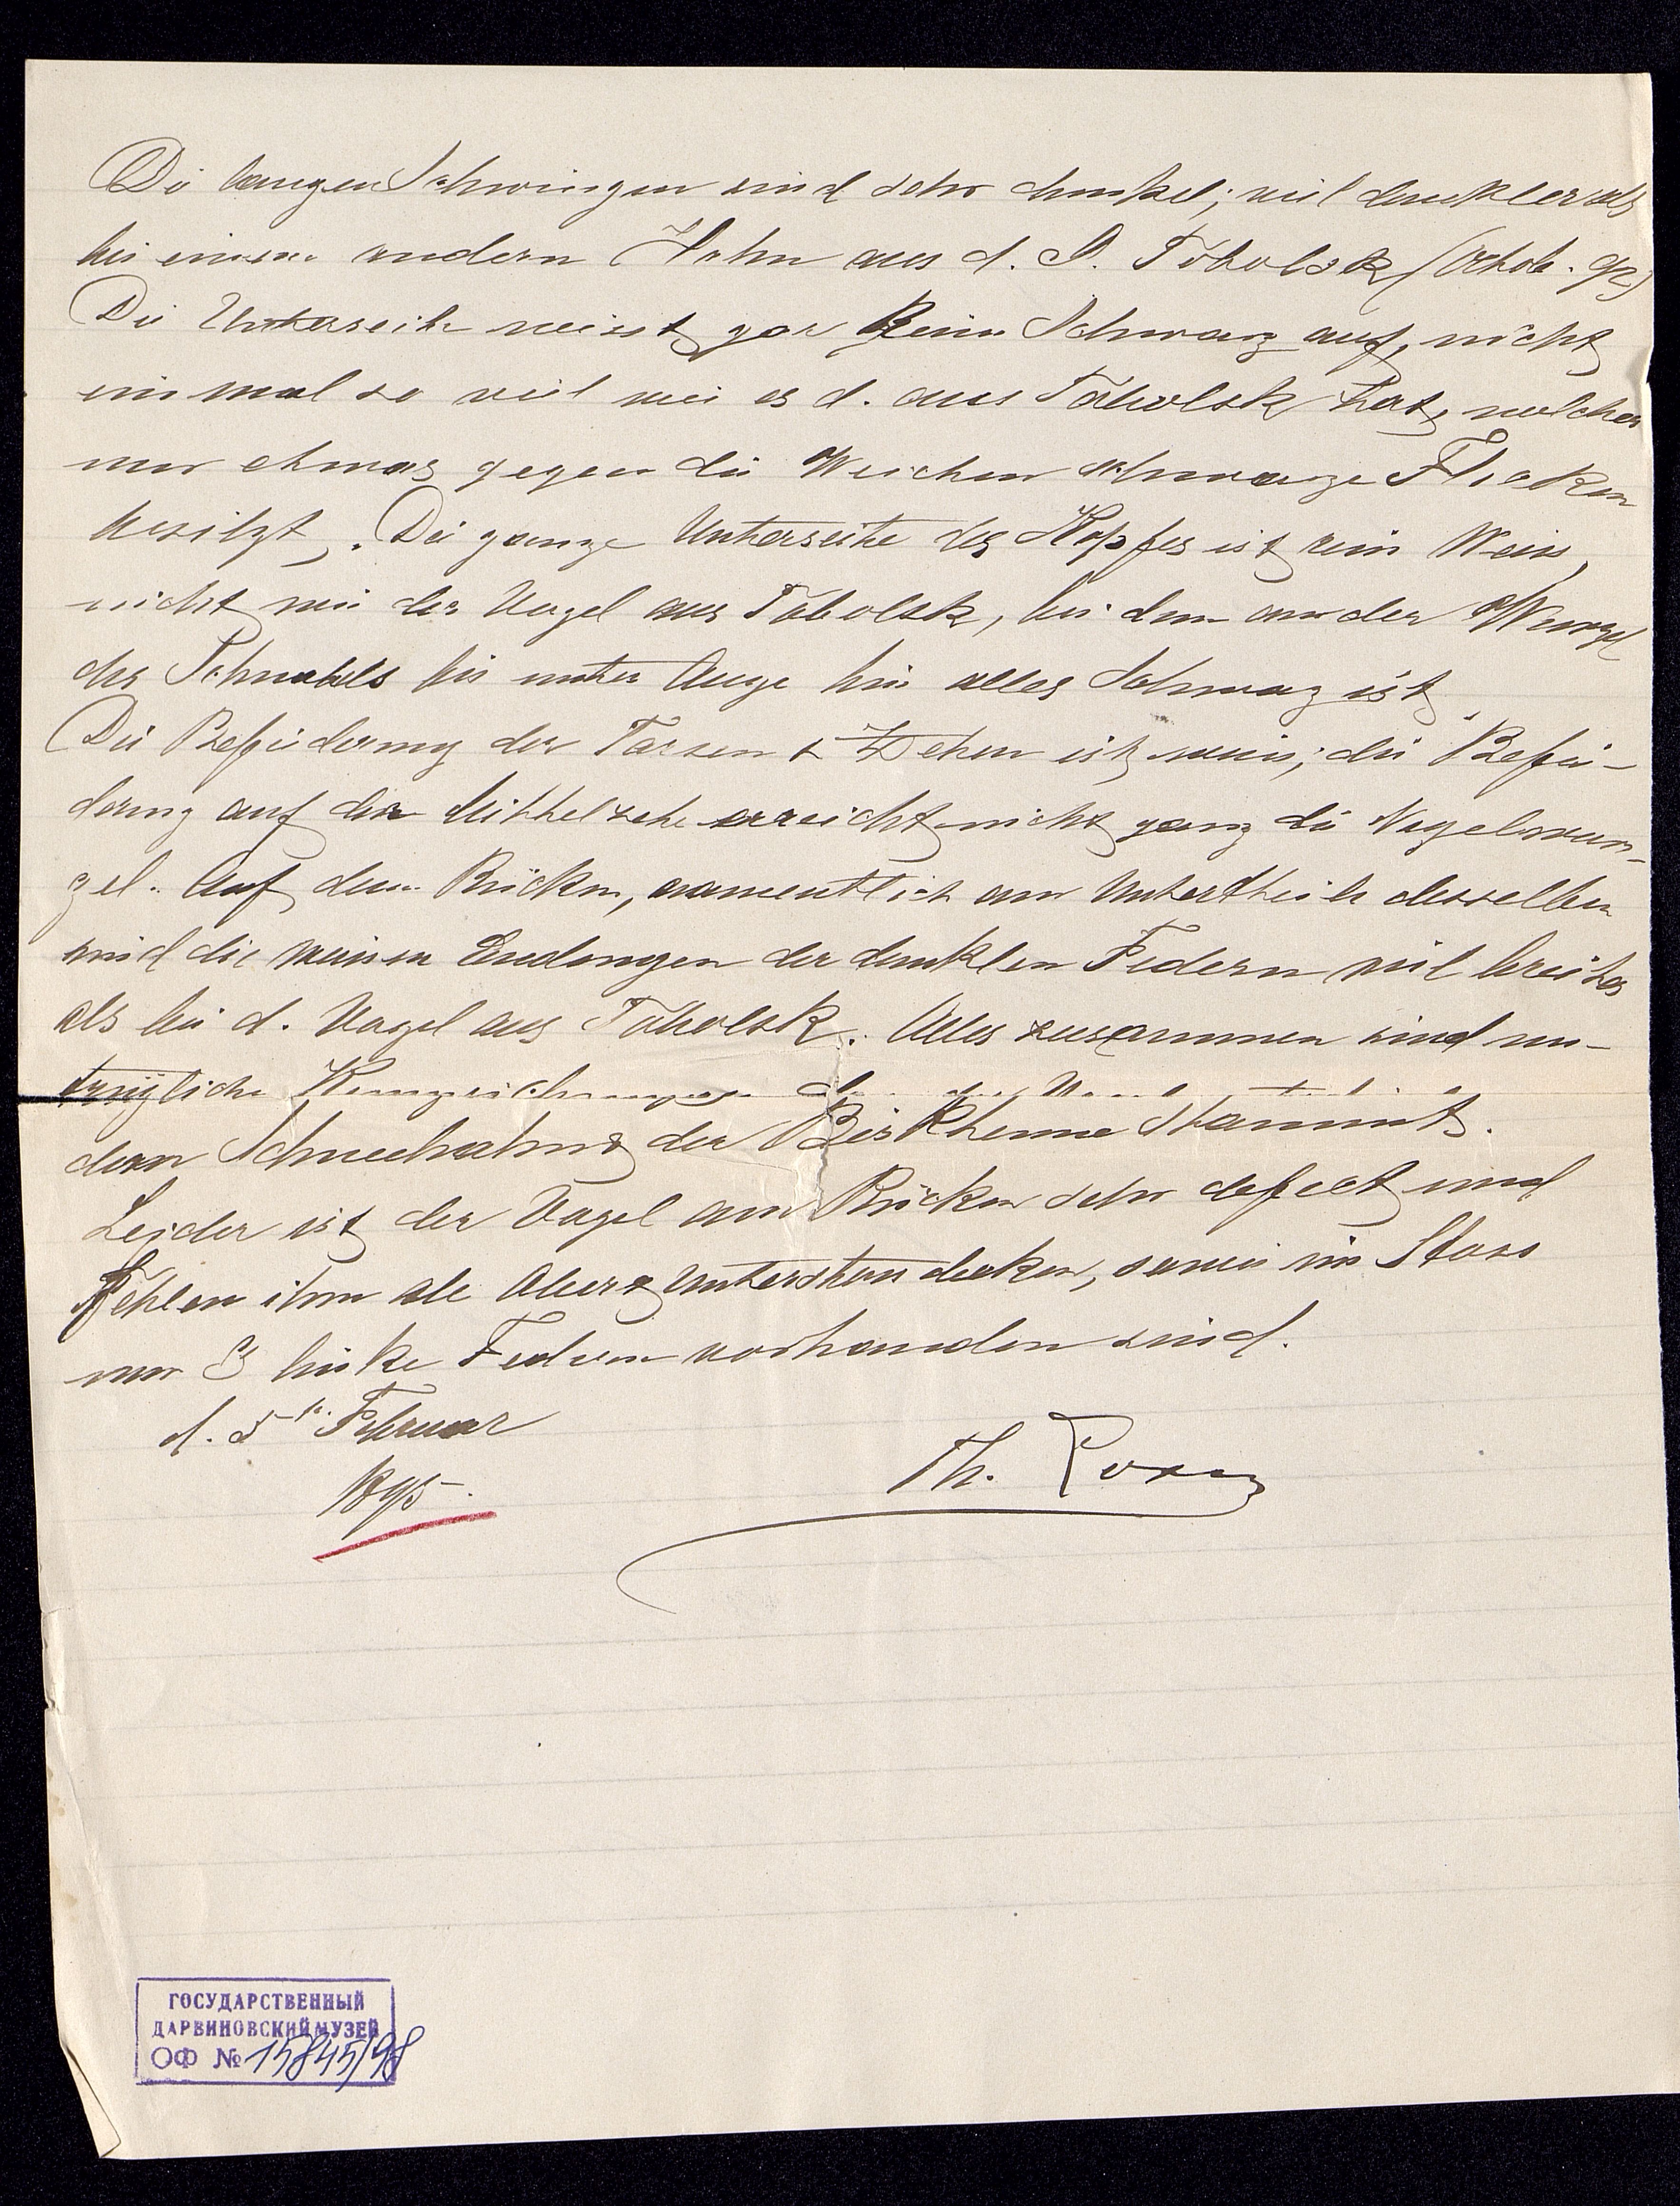 Die langen Schwingen sind sehr dunkel; viel dunkler als
bei einem andern Hahn aus d. G. Tobolsk (Octob. 92)
Die Unterseite weisst gar kein Schwarz auf, nicht
einmal so viel wie es d. aus Tobolsk hat, welcher
nur etwas gegen die Weichen schwarze Flecken
besitzt. Die ganze Unterseite des Kopfes ist rein Weiss,
nicht wie der Vogel aus Tobolsk, bei dem an der Wurzel
des Schnabels bis unter Auge hin alles Schwarz ist
Die Befiederung der Tarsen & Zehen ist weiss; die Befie-
derung auf der Mittelzehe erreicht nicht ganz die Nagelwur-
zel. Auf dem Rücken, namentlich am Untertheile desselben
sind die weissen Endungen der dunklen Federn viel breiter
als bei d. Vogel aus Tobolsk. Alles zusammen sind un-
trügliche Kennzeichnungen
dem Schneehahn & der Birkhenne stammt.
Leider ist der Vogel am Rücken sehr defect und
fehlen ihm alle Ober & Unterschwanzdecken, sowie im Stoss
nur 3 linke Federn vorhanden sind.
d. 5 te. Februar
1895.
Th. Lorenz
ГОСУДАРСТВЕННЫЙ
ДАРВИНОВСКИЙ МУЗЕЙ
ОФ № 15845/98